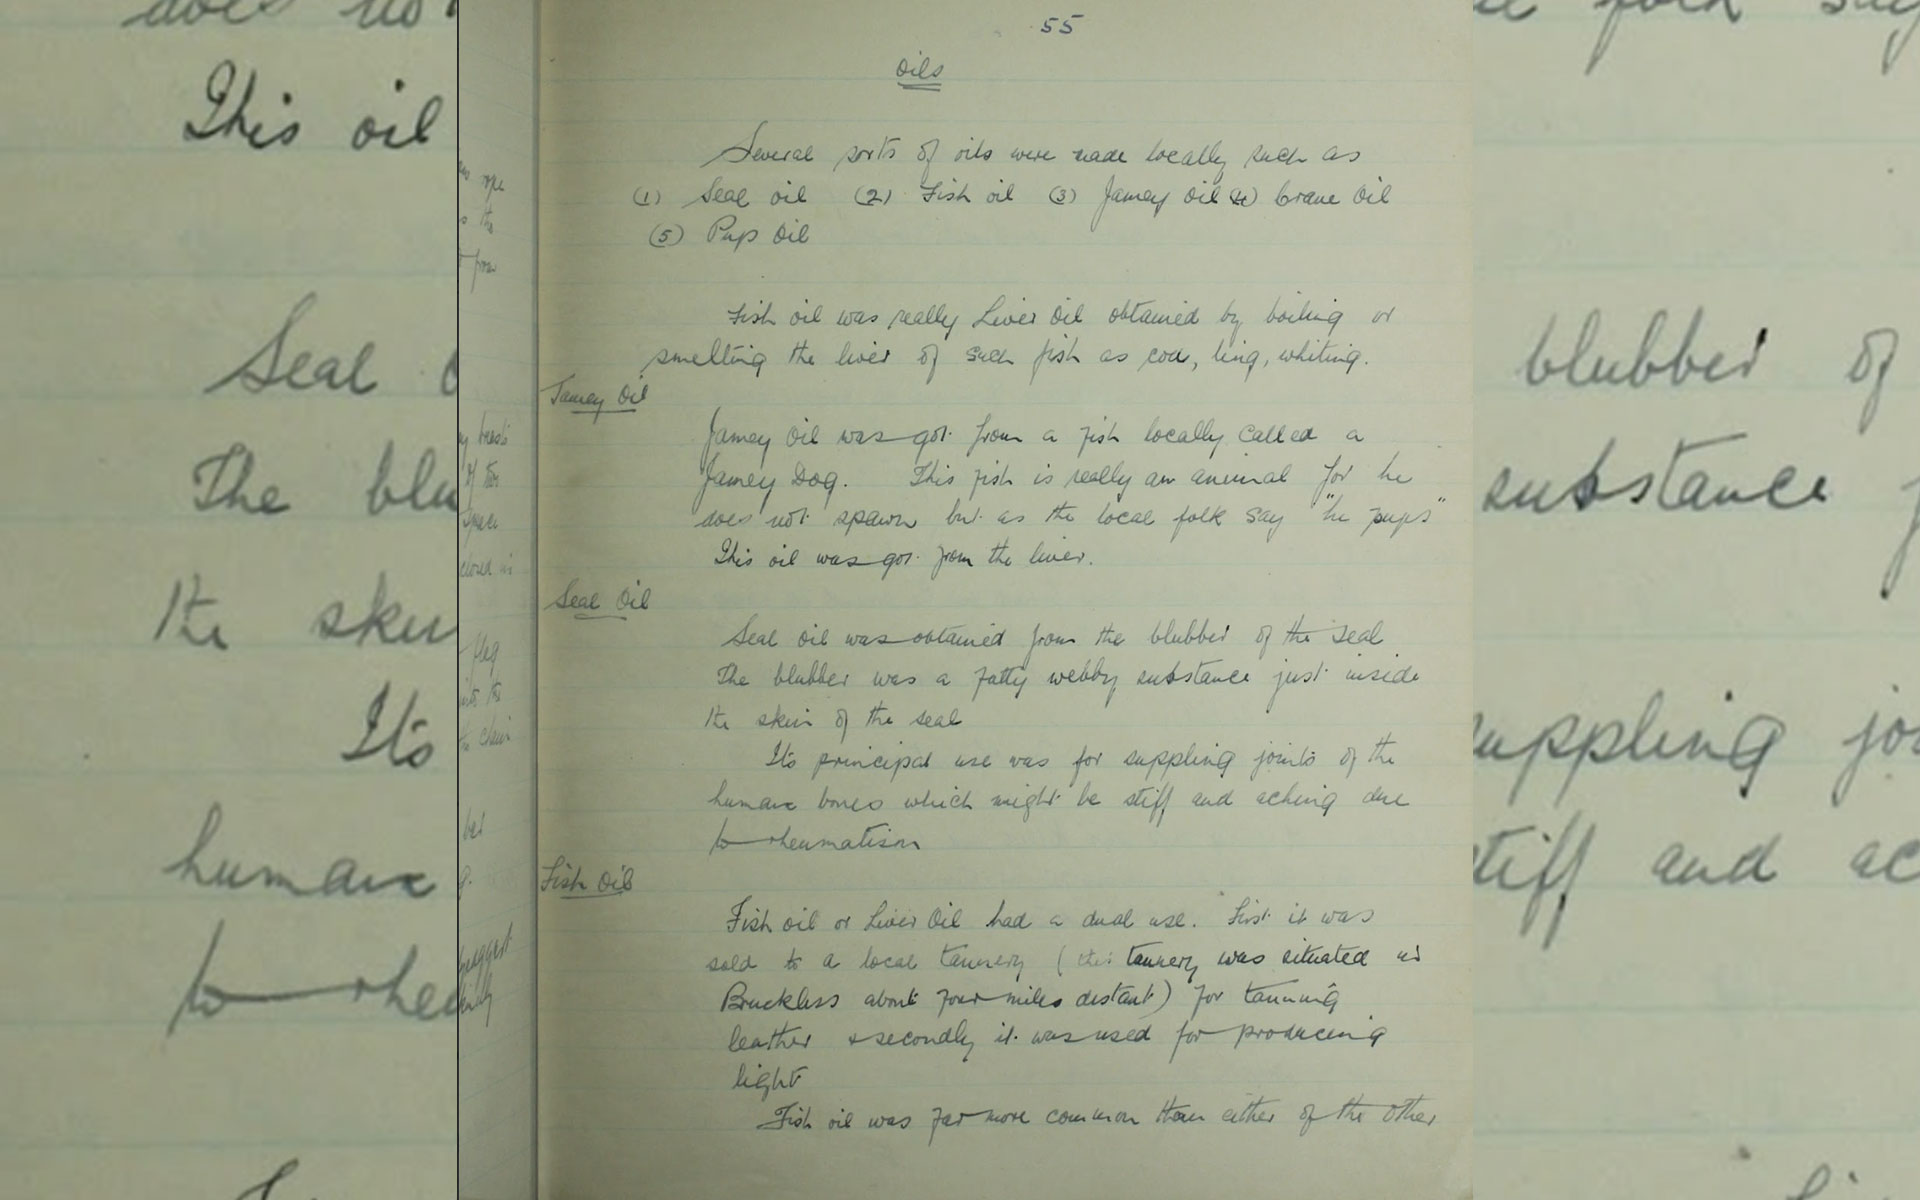 55
Oils
Several sorts of oils were made locally such as
(1) Seal oil (2) Fish oil (3) Jamey Oil (4) Crane Oil
(5) Pup Oil
Fish oil was really Liver Oil obtained by boiling or
smelting the liver of such fish as cod, ling, whiting.
Jamey Oil
Jamey Oil was got from a fish locally called a
Jamey Dog. This fish is really an animal for he
does not spawn but as the local folk say "he pups"
This oil was got from the liver.
Seal Oil
Seal oil was obtained from the blubber of the seal
The blubber was a fatty webby substance just inside
the skin of the seal
Its principal use was for suppling joints of the
human bones which might be stiff and aching due
to rheumatism
Fish Oil
Fish oil or Liver Oil had a dual use. First it was
sold to a local tannery (this tannery was situated in
Bruckless about four miles distant) for tanning
leather & secondly it was used for producing
light
Fish oil was far more common than either of the other